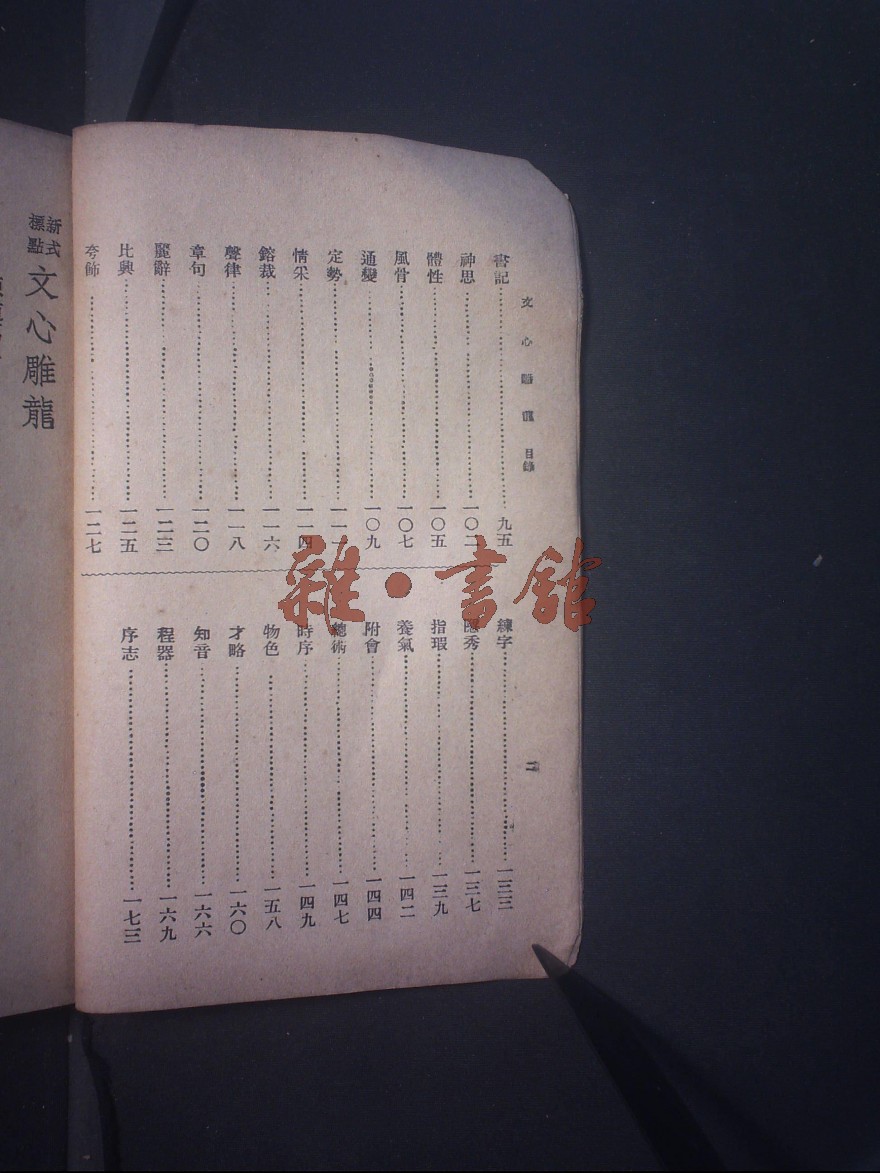 文心雕龍 目錄 二
書記……九五
神思……一〇二
體性……一〇五
風骨……一〇七
通變……一〇九
定勢……一一一
情采……一一四
鎔裁……一一六
聲律……一一八
章句……一二〇
麗辭……一二三
比興……一二五
夸飾……一二七
練字……一三三
隱秀……一三七
指瑕……一三九
養氣……一四二
附會……一四四
總術……一四七
時序……一四九
物色……一五八
才略……一六〇
知音……一六六
程器……一六九
序志……一七三
新式標點 文心雕龍
雜·書館